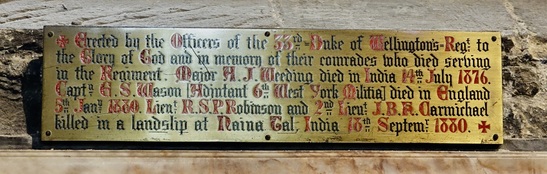 ✠ Erected by the Officers of the 33rd-Duke of Wellington's-Regt. to
the Glory of God and in memory of their comrades who died serving
in the Regiment. Major A.J. Weeding died in India 14th July 1876.
Captn. E.S. Wason [Adjutant 6th West York Militia] died in England
5th Jany. 1880. Lieut. R.S.P. Robinson and 2nd Lieut. J.B.A. Carmichael
killed in a landslip at Naina Tal, India 18th Septemr. 1880. ✠